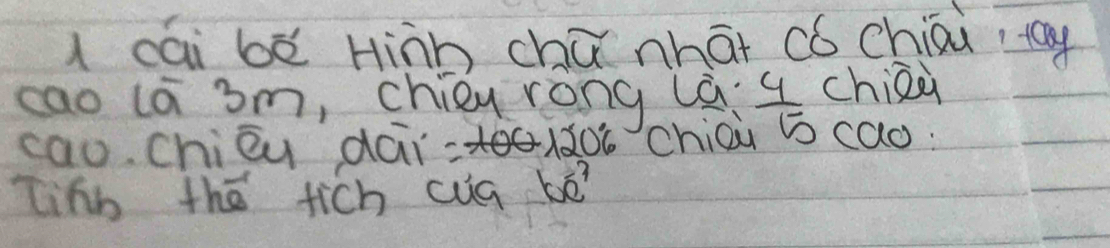 1 cái bể Hình chữ nhật có chiều
cao là 3m, chiều rộng là 4/5 chiều
cao. chiều dài = 120% chiều cao.
Tính thể tích của bể?